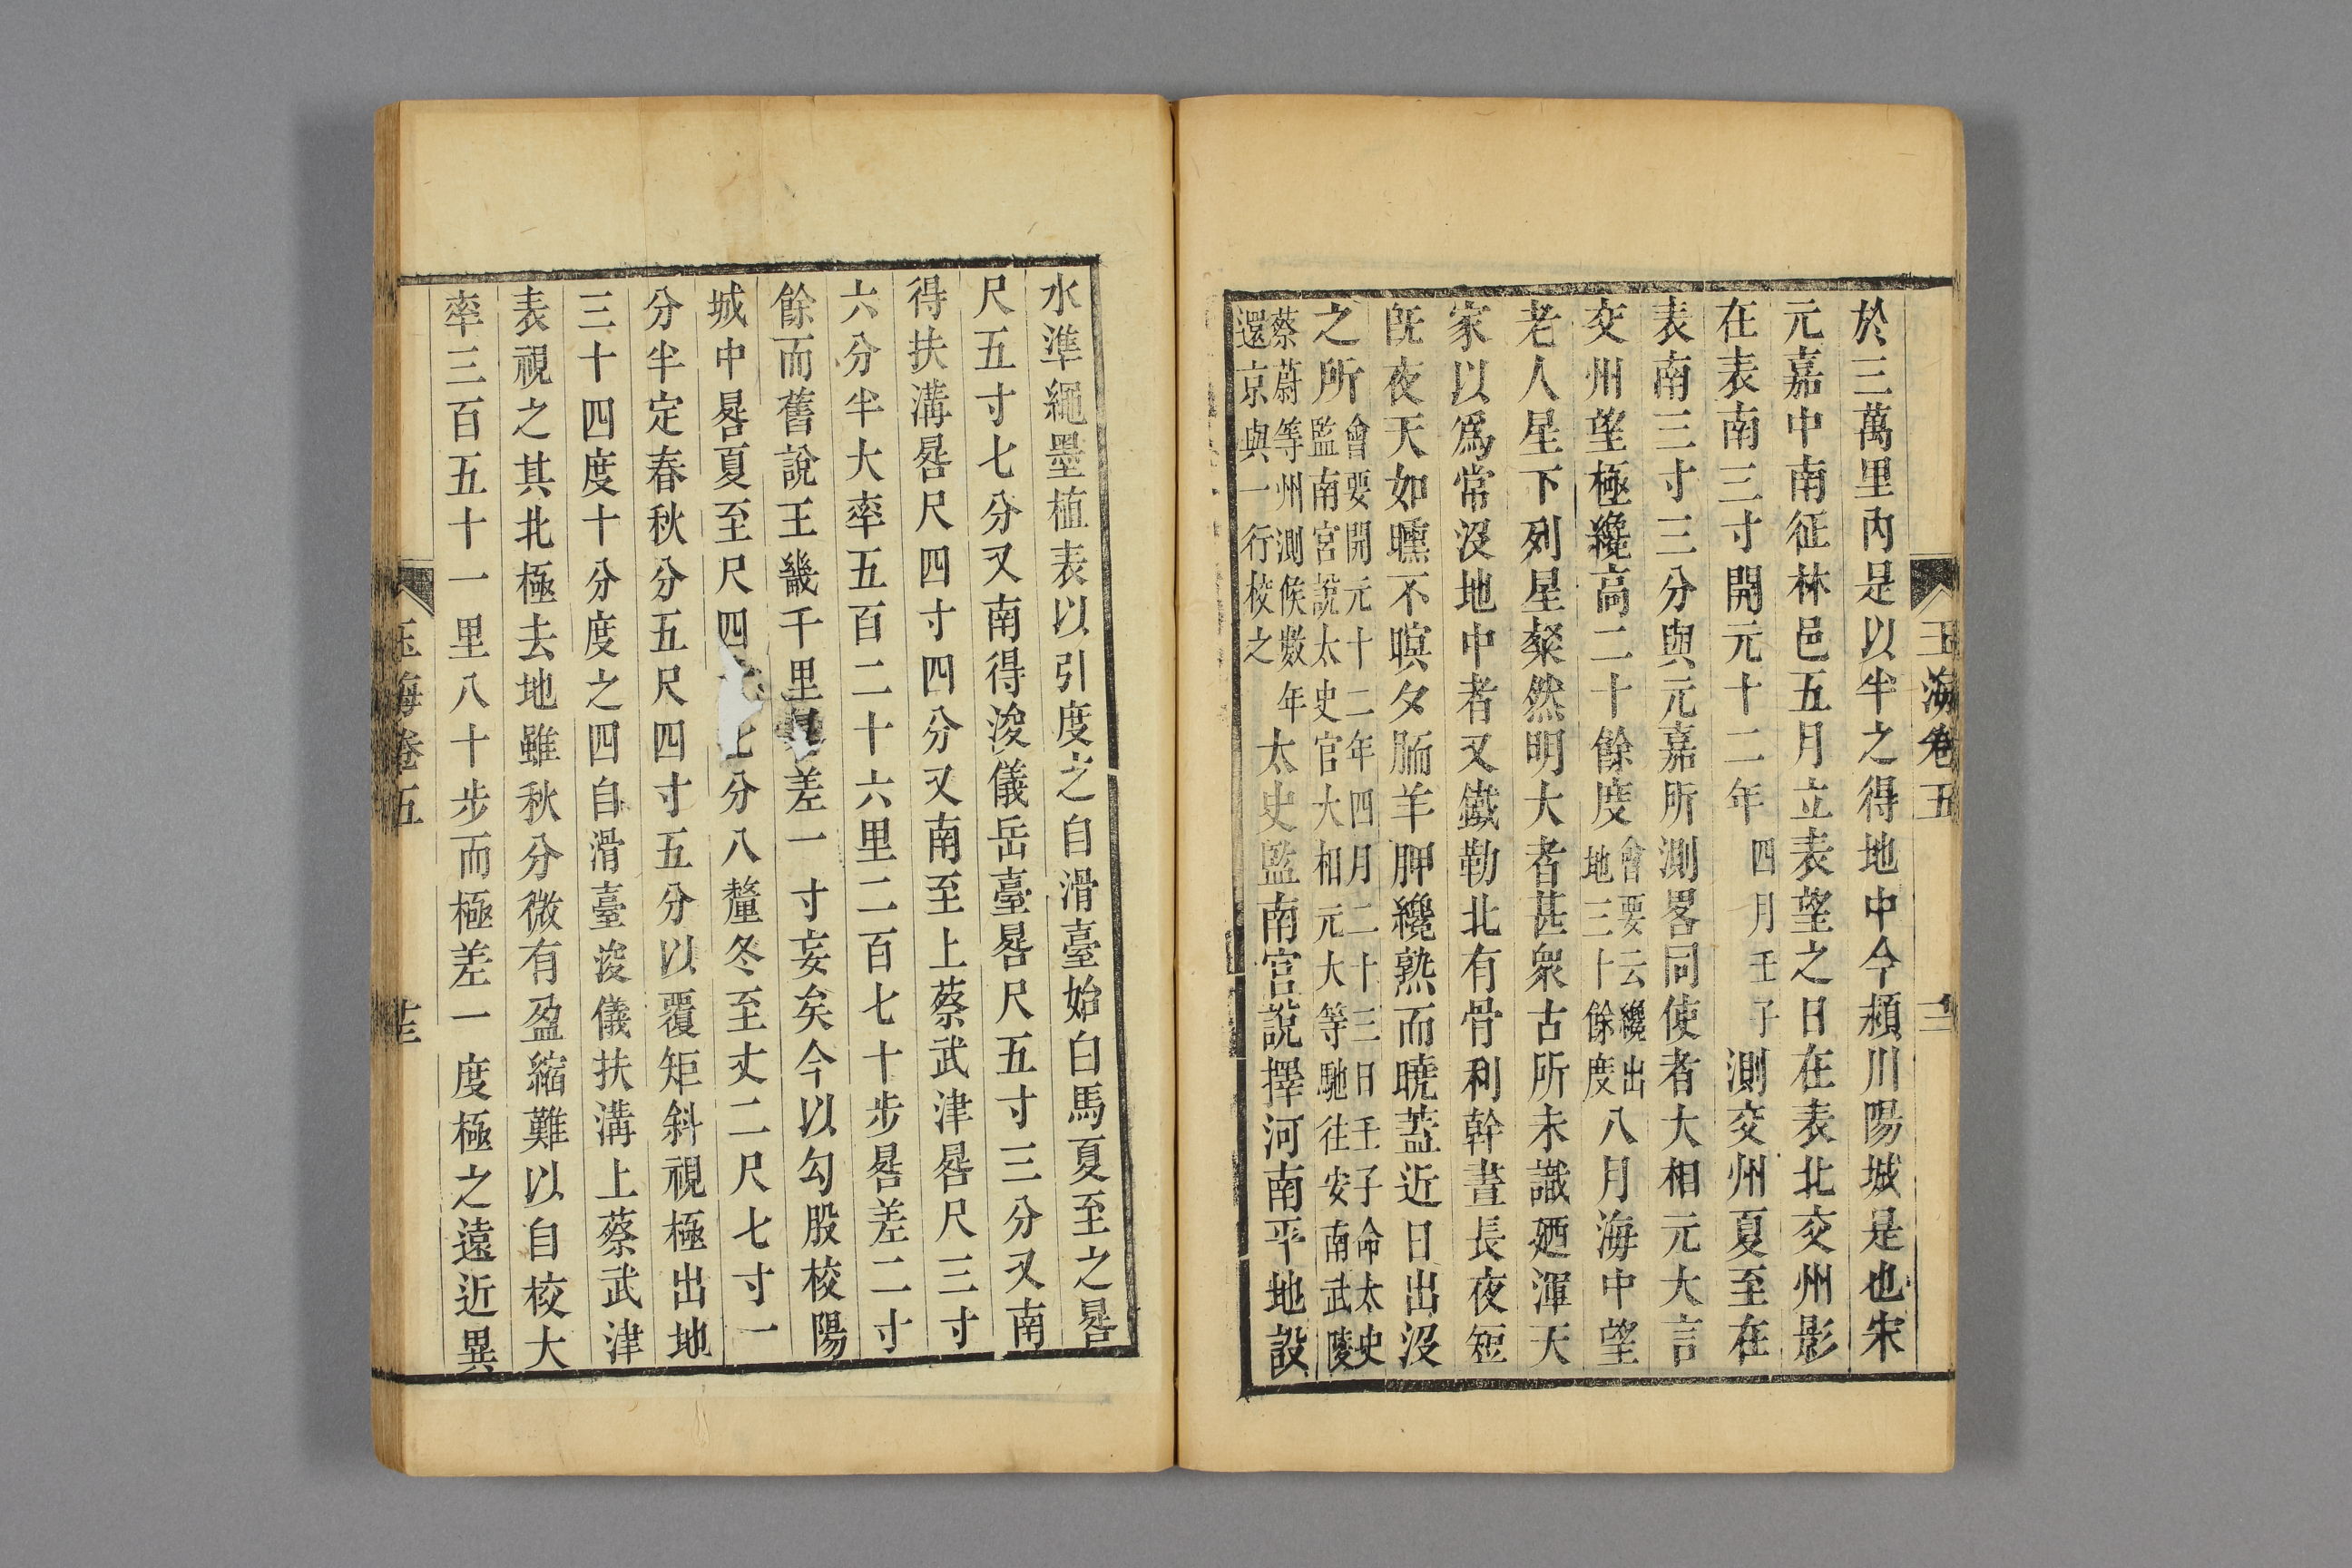 玉海卷五
於三萬里內是以半之得地中今潁川陽城是也宋
元嘉中南征林邑五月立表望之日在表北交州影
在表南三寸開元十二年四月壬子測交州夏至在
表南三寸三分與元嘉所測畧同使者大相元太言
交州望極纔高二十餘度會要云纔出地三十餘度八月海中望
老人星下列星粲然明大者甚衆古所未識廼渾天
家以爲常沒地中者又鐵勒北有骨利幹晝長夜短
旣夜天如曛不暝夕胹羊胛纔熟而曉蓋近日出沒
之所會要開元十二年四月二十三日壬子命太史監南宮說太史官大相元太等馳往安南武陵
蔡蔚等州測候數年還京與一行校之太史監南宮說擇河南平地設
水準繩墨植表以引度之自滑臺始白馬夏至之晷
尺五寸七分又南得浚儀岳臺晷尺五寸三分又南
得扶溝晷尺四寸四分又南至上蔡武津晷尺三寸
六分半大率五百二十六里二百七十步晷差二寸
餘而舊說王畿千里差一寸妄矣今以勾股校陽
城中晷夏至尺四七分八釐冬至丈二尺七寸一
分半定春秋分五尺四寸五分以覆矩斜視極出地
三十四度十分度之四自滑臺浚儀扶溝上蔡武津
表視之其北極去地雖秋分微有盈縮難以自校大
率三百五十一里八十步而極差一度極之遠近異
玉海卷五